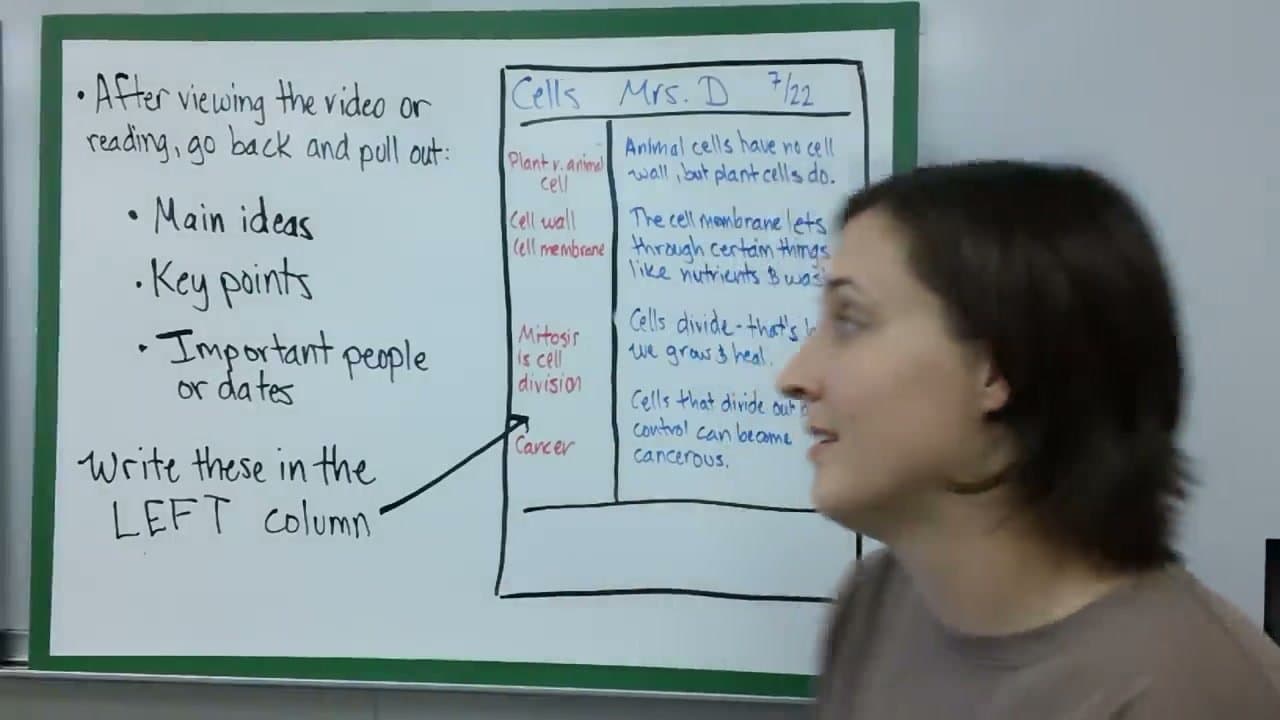 • After viewing the video or
reading, go back and pull out:
• Main ideas
• Key points
• Important people
or dates
Write these in the
LEFT column
Cells Mrs. D 7/22
Plant v. animal
cell
Cell wall
Cell membrane
Mitosis
is cell
division
Cancer
Animal cells have no cell
wall, but plant cells do.
The cell membrane lets
through certain things
like nutrients &
Cells divide - that's
we grow & heal.
Cells that divide out
control can become
cancerous.